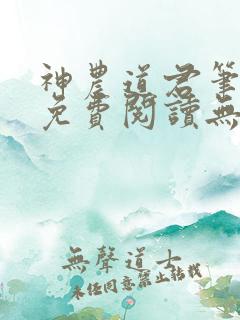 神農道君筆
免費閱讀無
無聲道士
未經同意禁止轉載